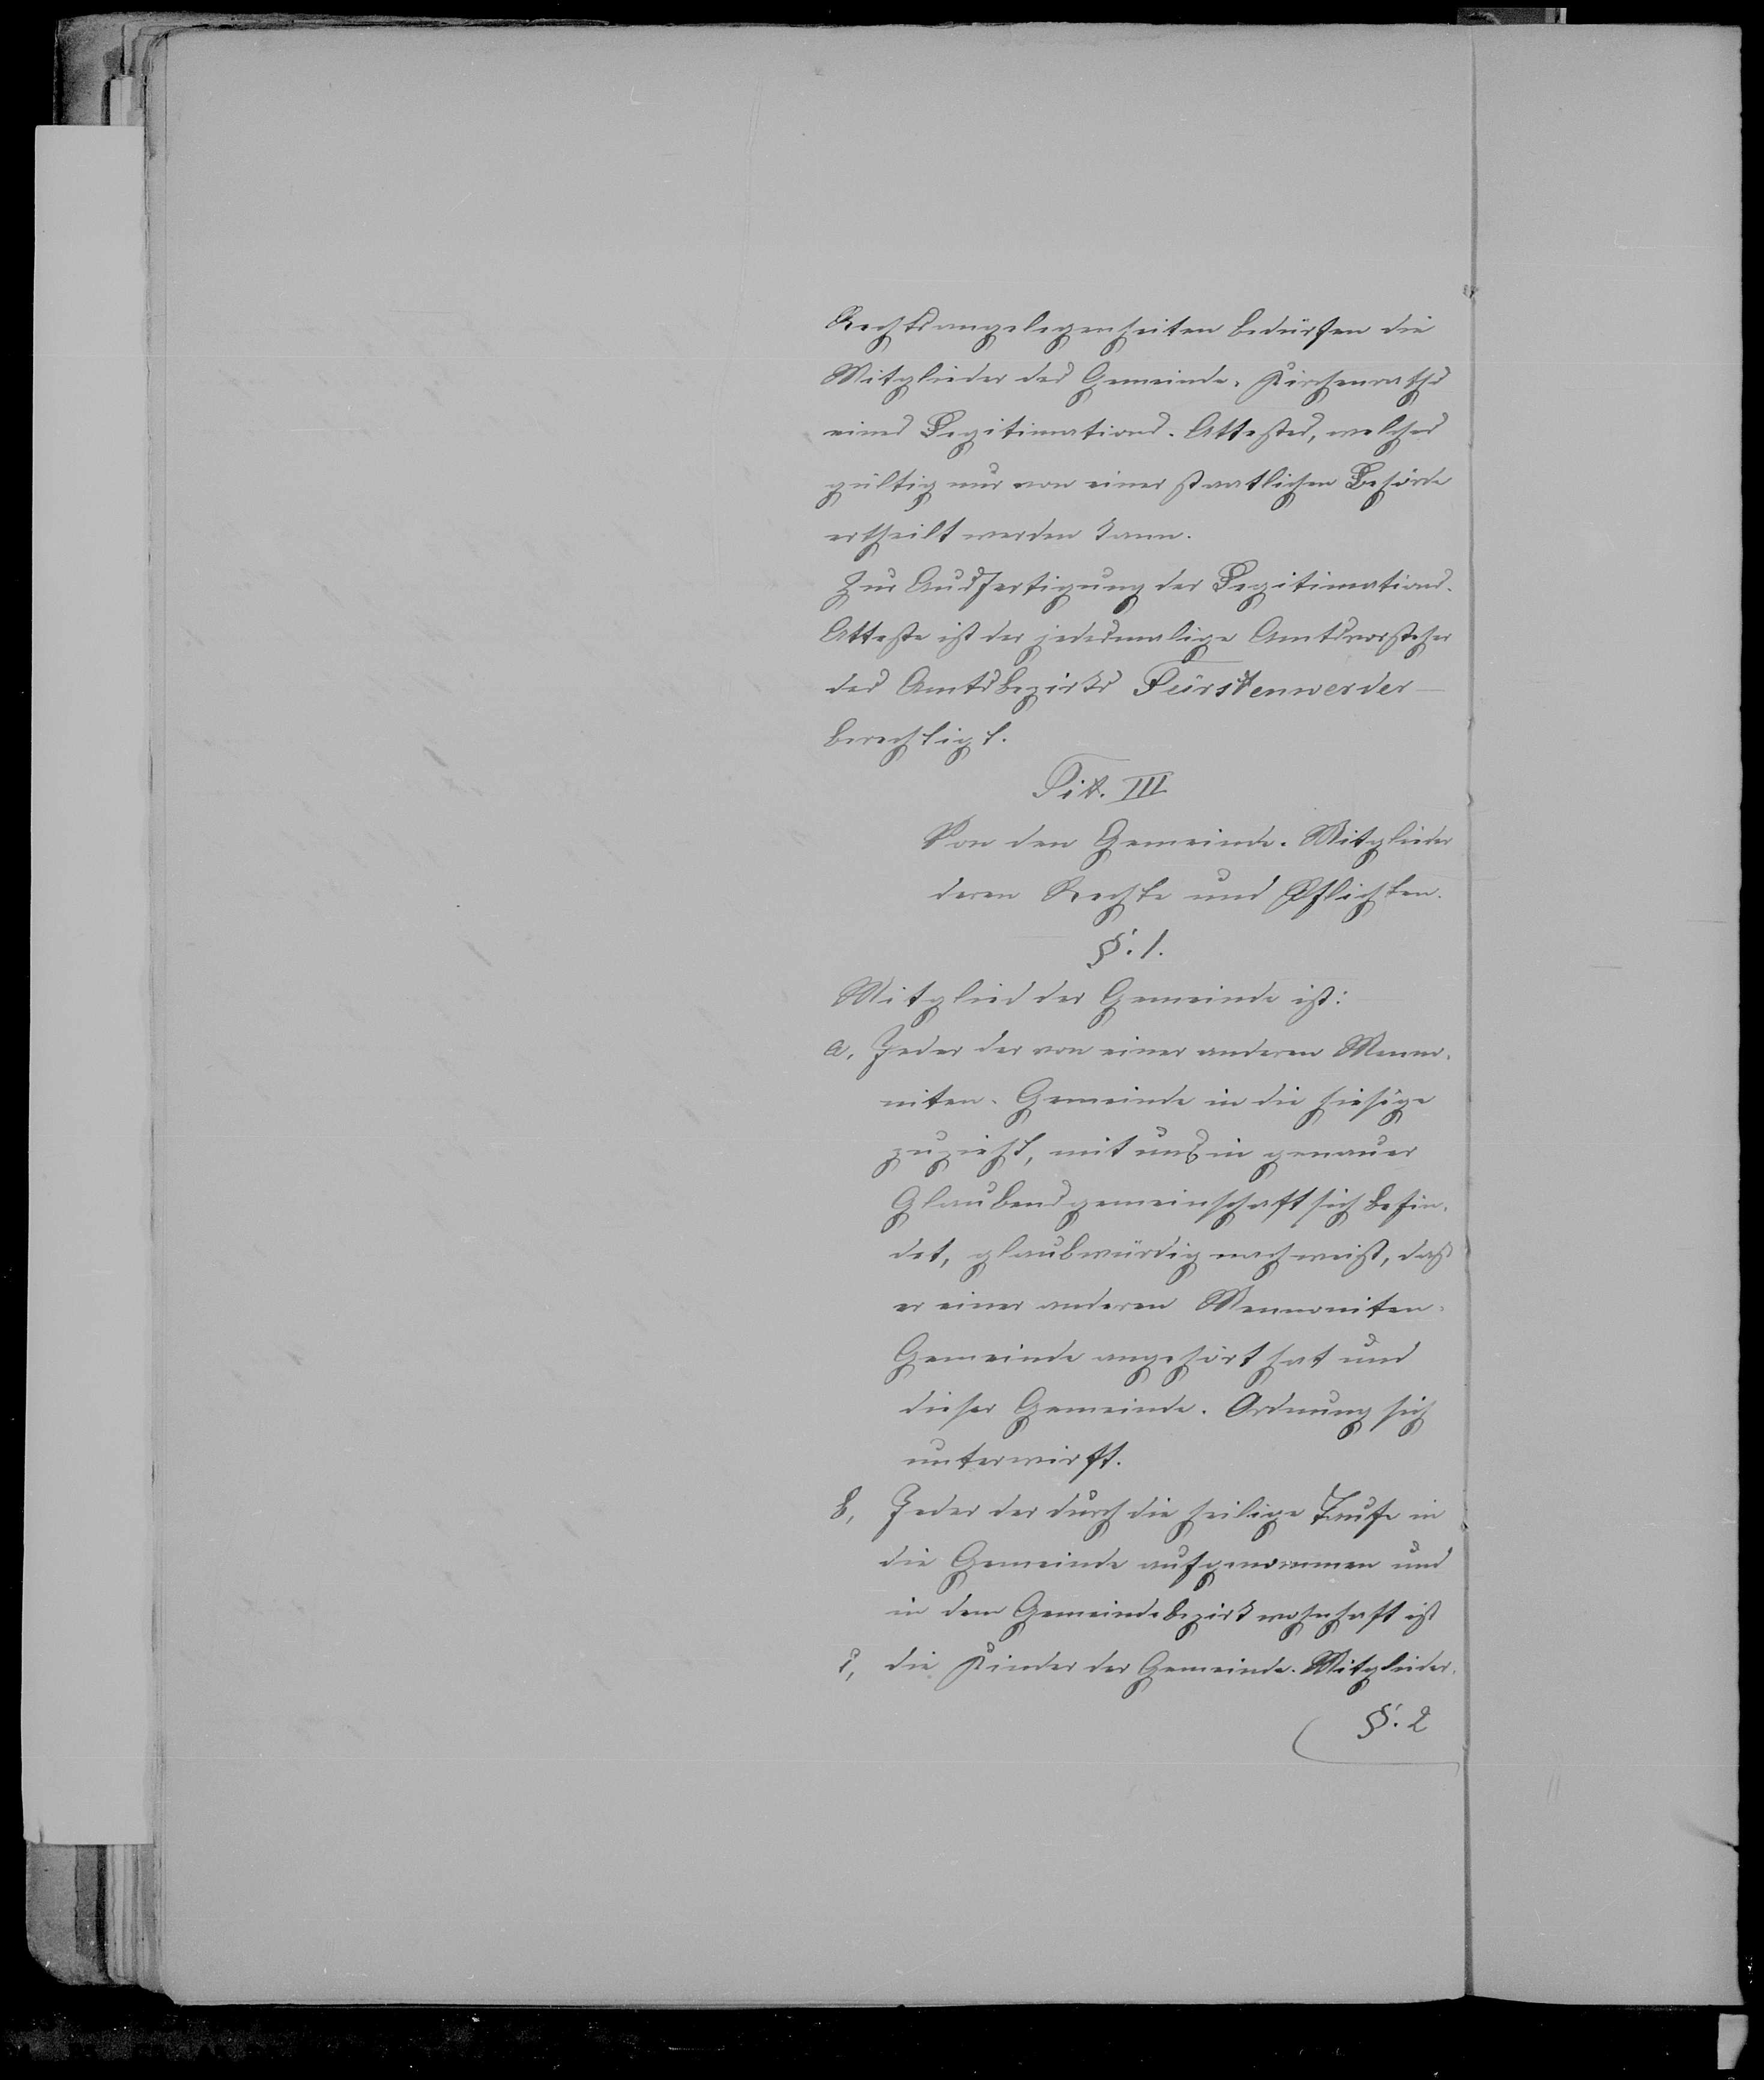 Rechtsangelegenheiten bedürfen die
Mitglieder des Gemeinde-Kirchenraths
eines Legitimations-Attestes, welches
gültig nur von einer staatlichen Behörde
ertheilt werden kann.
Zur Ausfertigung der Legitimations-
Atteste ist der jedesmalige Amtsvorsteher
des Amtsbezirks Fürstenwerder
berechtigt.
Tit. III
Von den Gemeinde-Mitglieder
deren Rechte und Pflichten.
§. 1.
Mitglied der Gemeinde ist:
a, Jeder der von einer anderen Menno-
niten-Gemeinde in die hiesige
zuzieht, mit uns in genauer
Glaubensgemeinschaft sich befin-
det, glaubwürdig nachweist, daß
er einer anderen Mennoniten-
Gemeinde angehört hat und
dieser Gemeinde-Ordnung sich
unterwirft.
b, Jeder der durch die heilige Taufe in
die Gemeinde aufgenommen und
in dem Gemeindebezirk wohnhaft ist
c, die Kinder der Gemeinde-Mitglieder.
§. 2